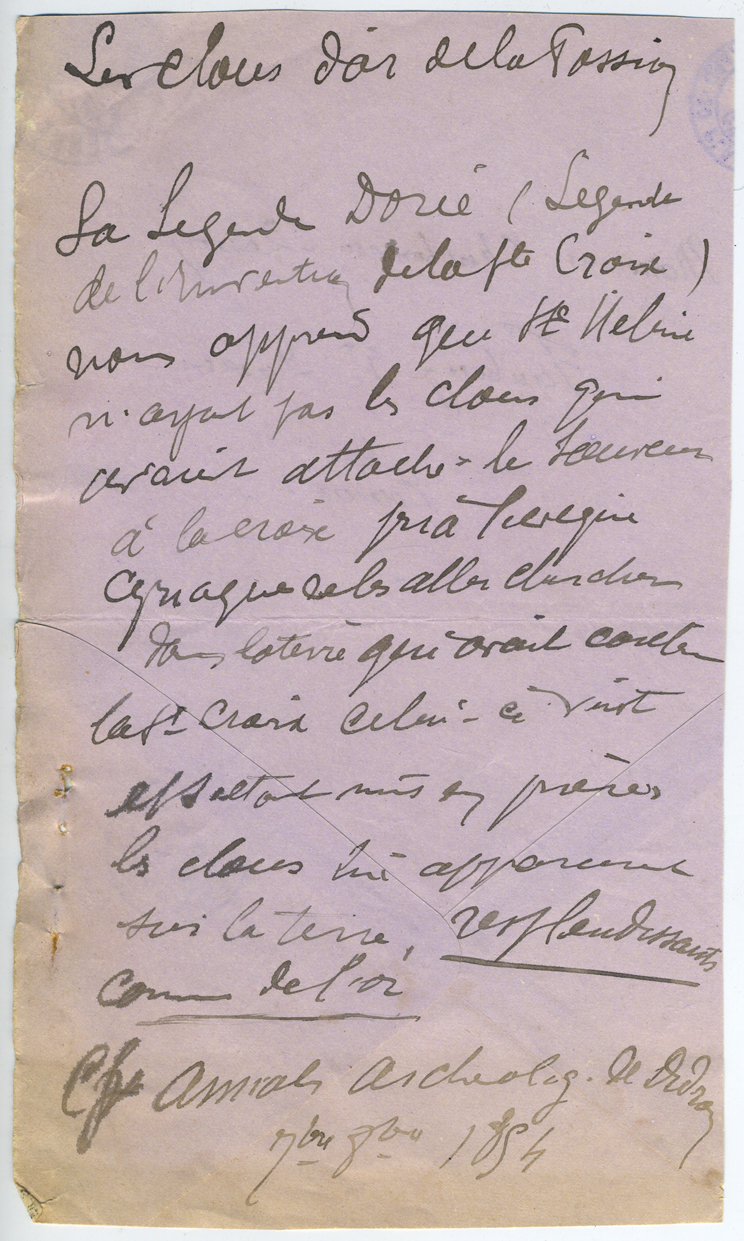 Les clous d'or de la Passion
La Legende Dorée (Legende
de l'Invention de la Ste Croix)
nous apprend que Ste Helène
n'ayant pas les clous qui
avaient attachés le Sauveur
à la croix pria l'eveque
Cyriaque de les aller chercher
dans la terre qui avait contenu
la Ste Croix Celui-ci vint
et s'etant mis en prières
les clous lui apparurent
sur la terre, resplendissants
comme de l'or
Cfr Annales Archeolog. de Didron
7bre 8bre 1854